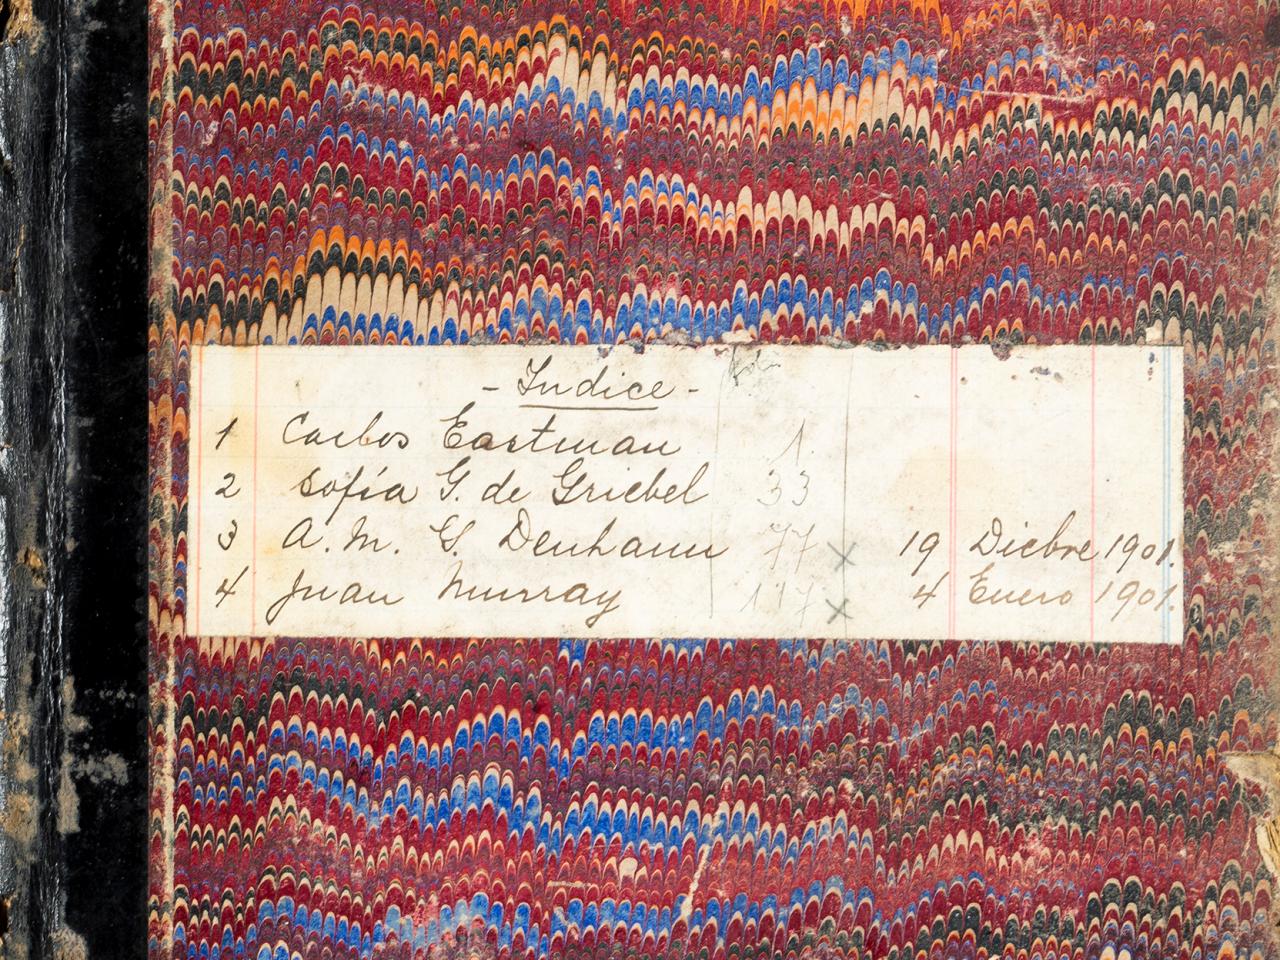 - Indice -
1 Carlos Eastman 1
2 Sofía G. de Griebel 33
3 A. M. G. Denhamm 77 x 19 Dicbre 1901.
4 Juan Murray 117 x 4 Enero 1901.